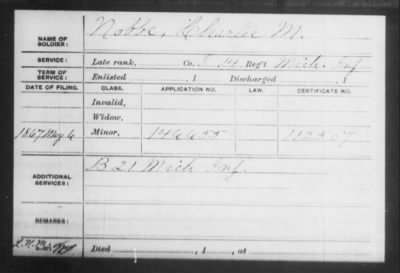 NAME OF SOLDIER: Nobbe, Charlie M.
SERVICE: Late rank, Co. 14 Reg't Mich. Inf.
TERM OF SERVICE: Enlisted , 1 Discharged , 1
DATE OF FILING. CLASS. APPLICATION NO. LAW. CERTIFICATE NO.
Invalid,
Widow,
1867 May 6 Minor, 146655 112307
ADDITIONAL SERVICES: B 21 Mich Inf.
REMARKS:
Died , 1 , at